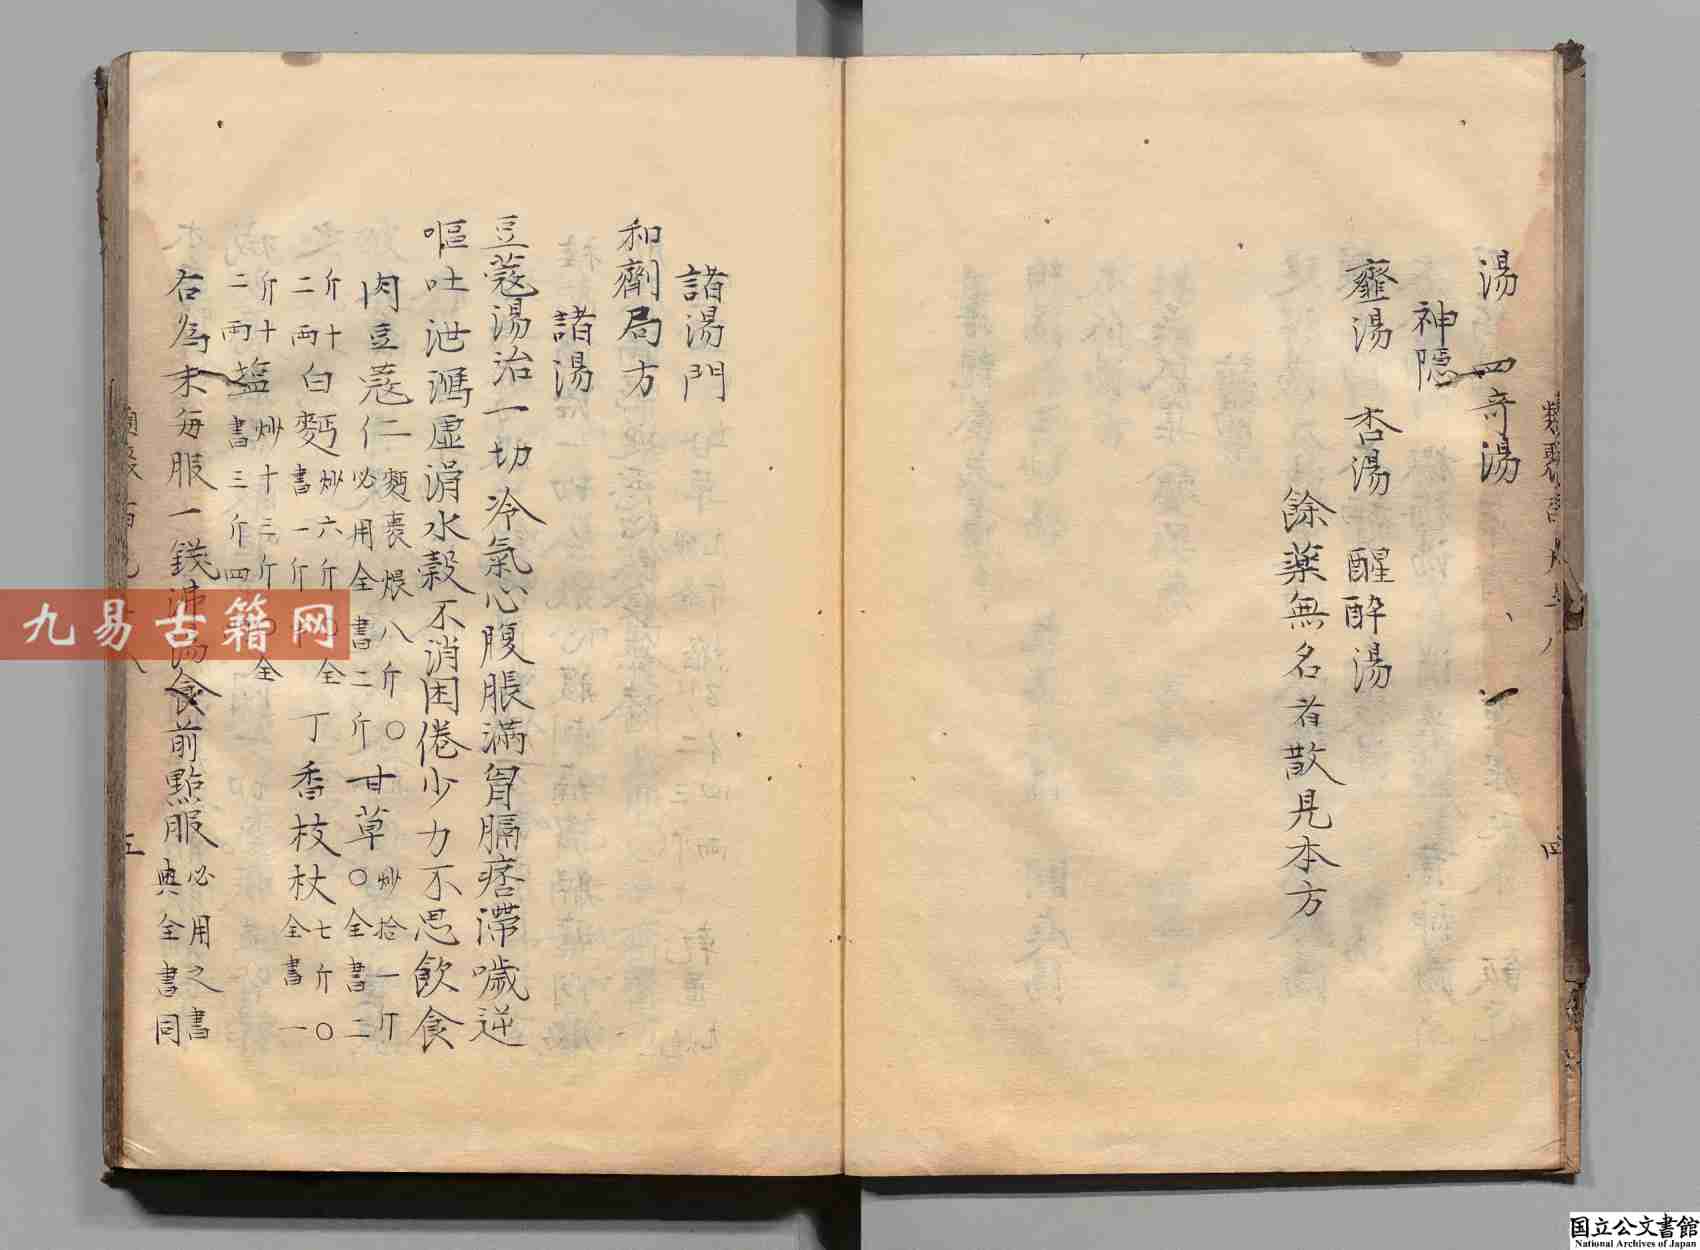 湯　四奇湯
神隠
虀湯　杏湯　醒酔湯
餘薬無名者散見本方
諸湯門
和劑局方
諸湯
豆蔻湯治一切冷氣心腹脹滿胷膈痞滯噦逆
嘔吐泄瀉虚滑水穀不消困倦少力不思飲食
肉豆蔻仁麪裹煨八斤〇必用全書二斤甘草炒拾一斤〇全書二
斤十二兩白麪炒六斤全書一斤丁香枝杖七斤〇全書一
斤十二兩塩炒十三斤全書三斤四
右為末每服一錢沸湯食前點服必用之書典全書同
五
四
九易古籍网
国立公文書館
National Archives of Japan